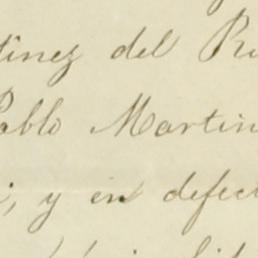 tinez del Ri
Pablo Martin
i, y en defect